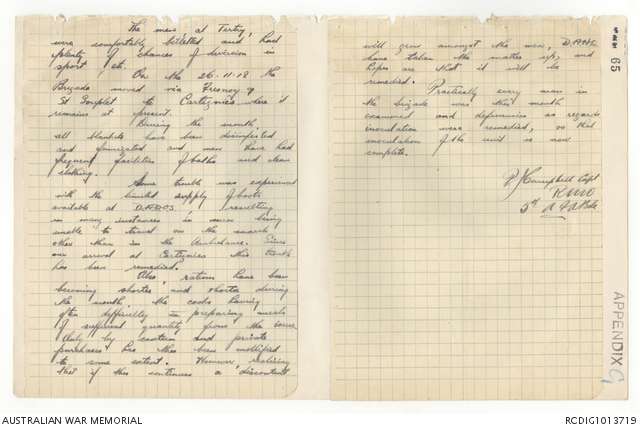 The men at Tertry,
were comfortably billetted and had
plenty of chances of diversion in
sport, etc.
On the 26-11-18 the
Brigade moved via Fresnoy &
St Souplet to Cartignies where it
remains at present.
During the month,
all blankets have been disinfected
and fumigated and men have had
frequent facilities of baths and clean
clothing.
Some trouble was experienced
with the limited supply of boots
available at D.A.D.O.S. resulting
in many instances in men being
unable to travel on the march
other than in the Ambulance. Since
our arrival at Cartignies this trouble
has been remedied.
Also, rations have been
becoming shorter and shorter during
the month, the cooks having
often difficulty in preparing meals
of sufficient quantity from the issue
Only by canteen and private
purchases has this been mollified
to some extent. However realising
that if this continues a "discontent
will grow amongst the men,
have taken the matter up, and
hopes are that it will be
remedied.
Practically every man in
the brigade was this month
examined and deficiencies as regards
inoculation were remedied, so that
inoculation of the unit is now
complete.
Campbell Capt
RMO
5th A F A Bde
65
APPENDIX
AUSTRALIAN WAR MEMORIAL
RCDIG1013719